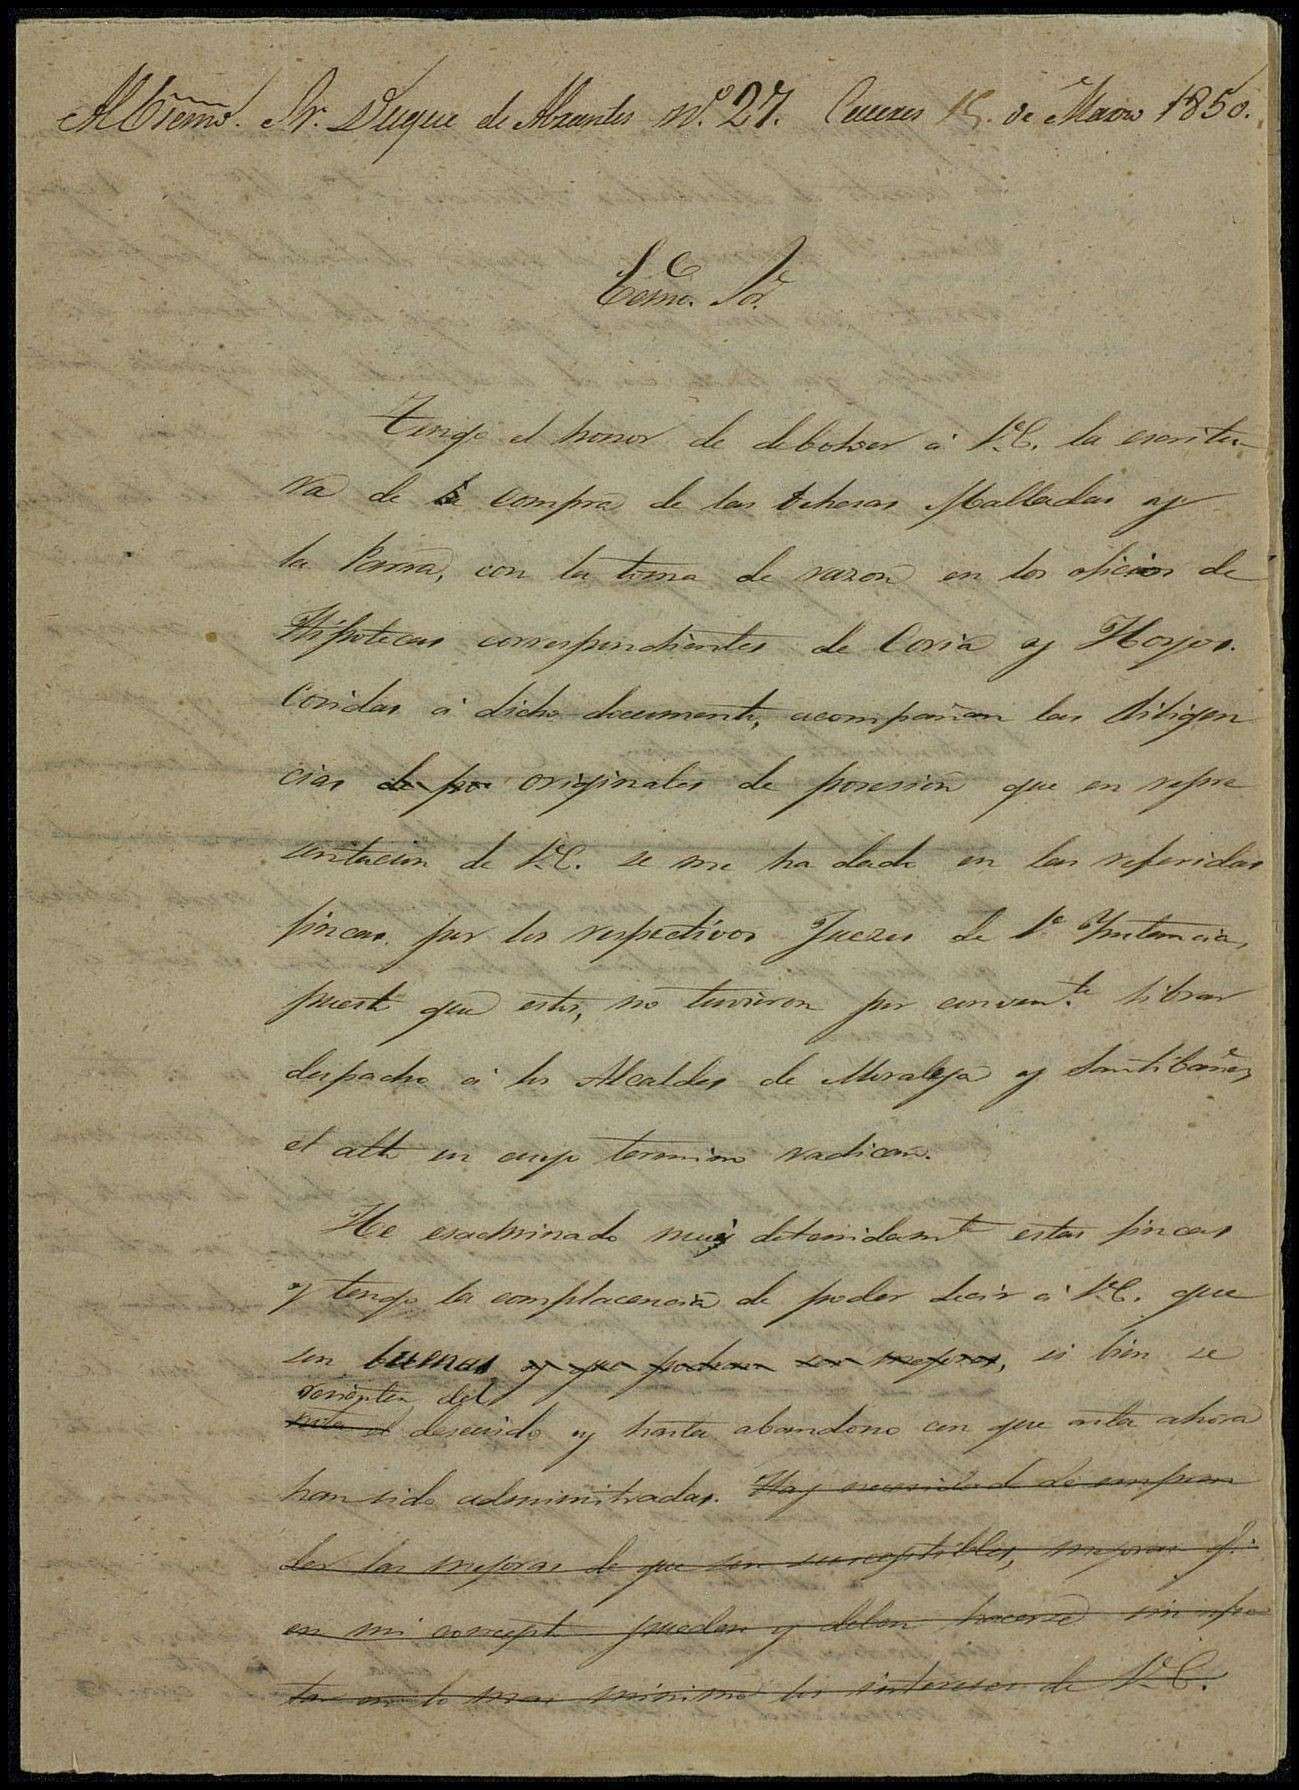 Al Excmo. Sr. Duque de Abrantes nº. 27. Caceres 15. de Marzo 1850.
Excmo. Sor.
Tengo el honor de debolver á V.E. la escritu-
ra de la compra de las dehesas Malladas y
la Parra, con la toma de razon en los oficios de
Hipotecas correspondientes de Coria y Hoyos.
Cosidas á dicho documento, acompañan las diligen
cias de po originales de posesion que en repre
sentacion de V.E. se me ha dado en las referidas
fincas por los respectivos Juezes de 1ª Ynstancia,
puesto que estos, no tuvieron por convente. librar
despacho á los Alcaldes de Moraleja y Santibañez
el alto en cuyo termino radican.
He esacminado muy detenidamte estas fincas
y tengo la complacencia de poder decir á V.E. que
son buenas y que podran ser mejores, si bien se
resienten del
nota el descuido y hasta abandono con que asta ahora
han sido administradas. Hay necesidad de empren
der las mejoras de que son susceptibles, mejoras q.e
en mi concepto pueden y deben hacerse sin afec
tar en lo mas minimo los intereses de V.E.